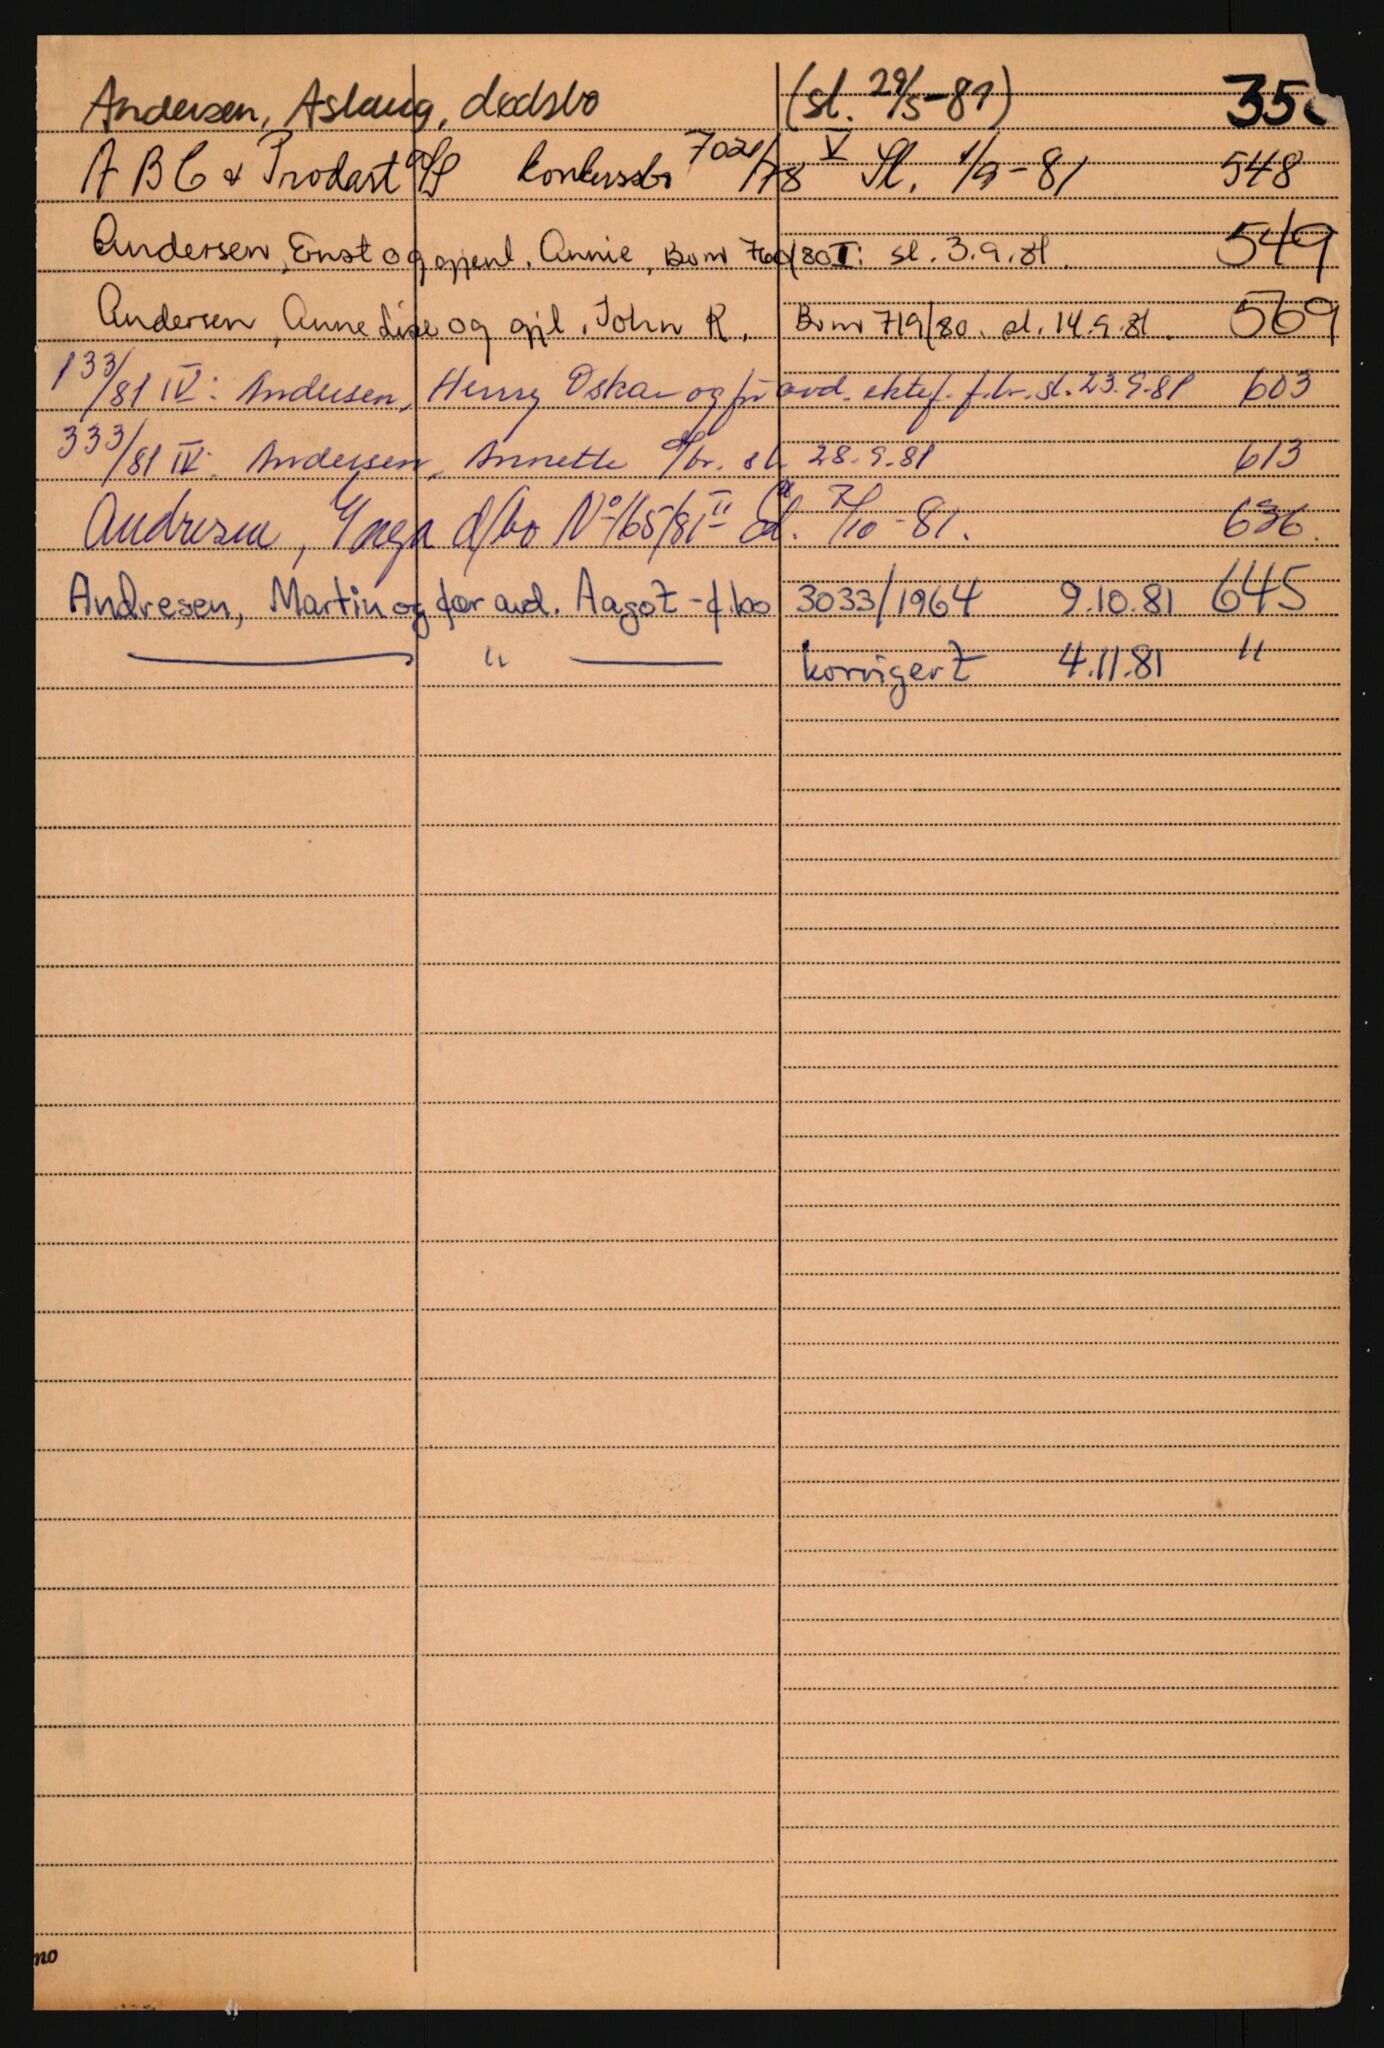 Andersen, Aslaug, dødsbo (sl. 29/5-81)
A B C & Prodart A/S konkursbo 7021/78 V Sl. 1/9-81 548
Andersen, Ernst og gjenl. Annie, Bo nr 760/80 I: sl. 3.9.81. 549
Andersen, Anne Lise og gjl. John R. Bo nr 719/80. sl. 14.9.81. 569
133/81 IV: Andersen, Henry Oskar og før avd. ektef. f.br. sl. 23.9.81 603
333/81 IV: Andersen, Annette d/br. sl. 28.9.81 613
Andresen, d/bo No 165/81 II Sl. 7/10-81. 636.
Andresen, Martin og før avd. Aagot - f.bo 3033/1964 9.10.81 645
" korrigert 4.11.81 "
mo